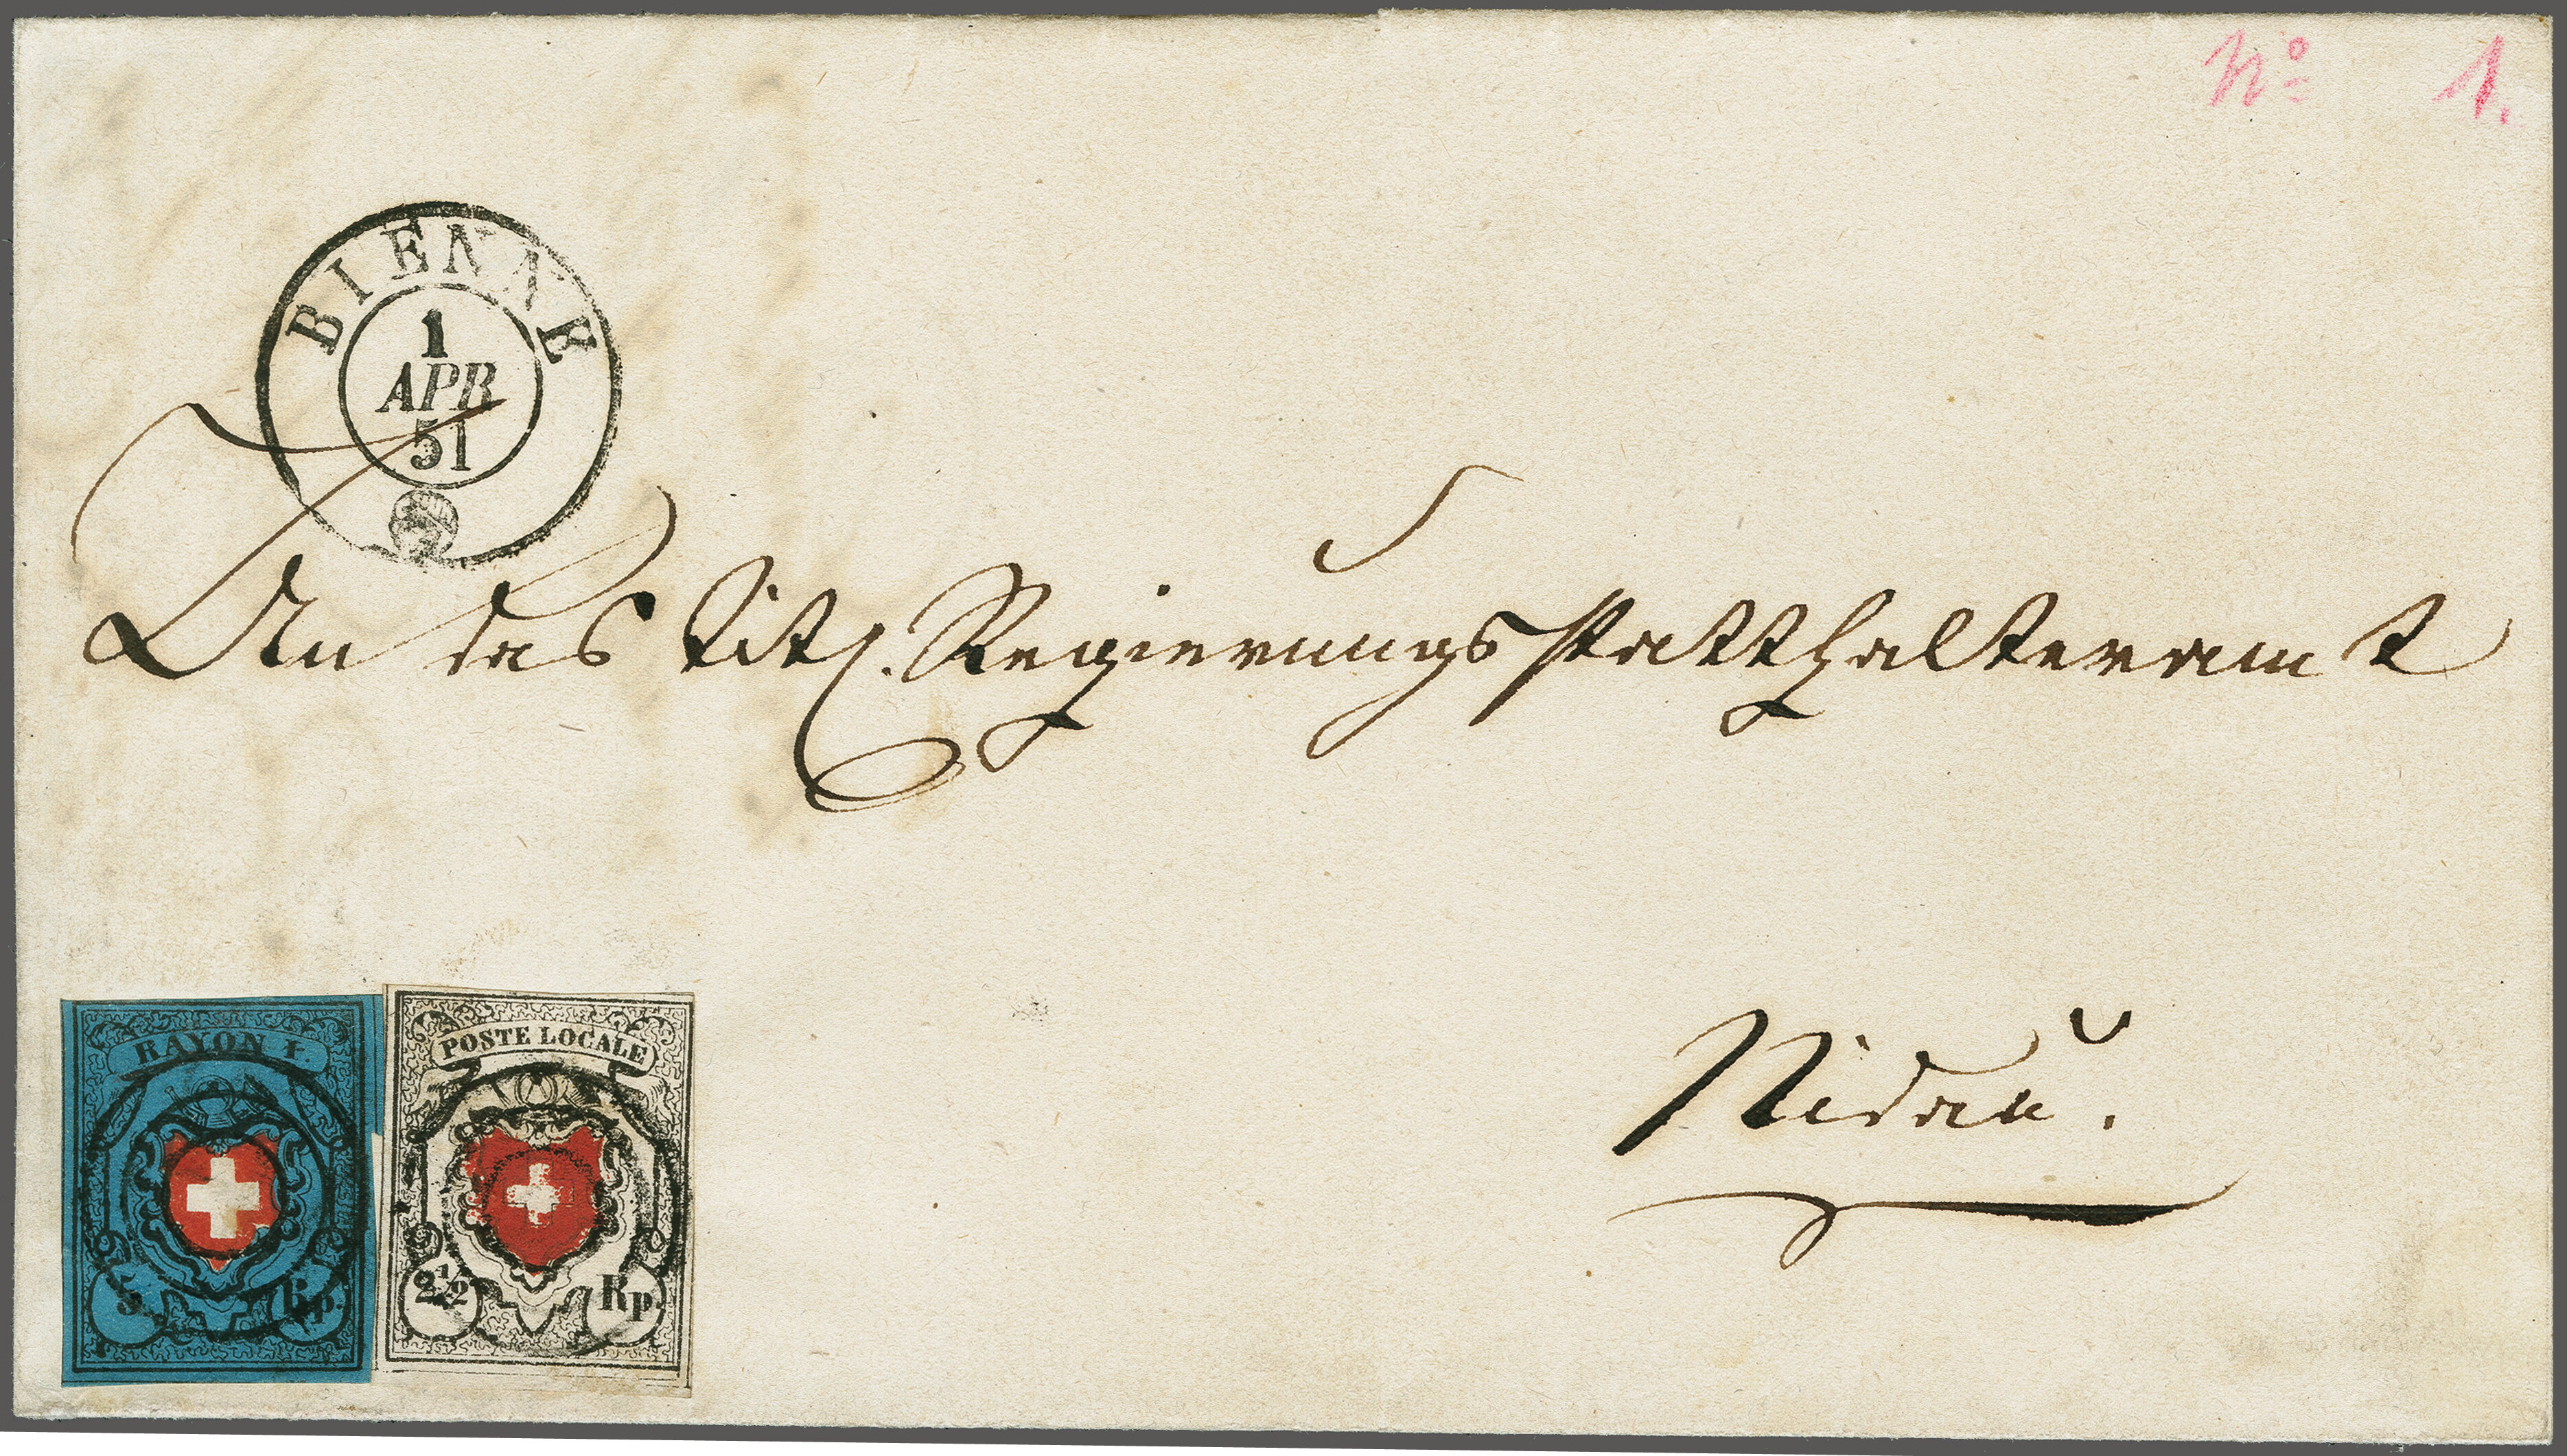 No 1.
BIENNE
1
APR
51
An das titl. Regierungsstatthalteramt
Nidau.
RAYON I.
5 Rp.
POSTE LOCALE
2 1/2 Rp.